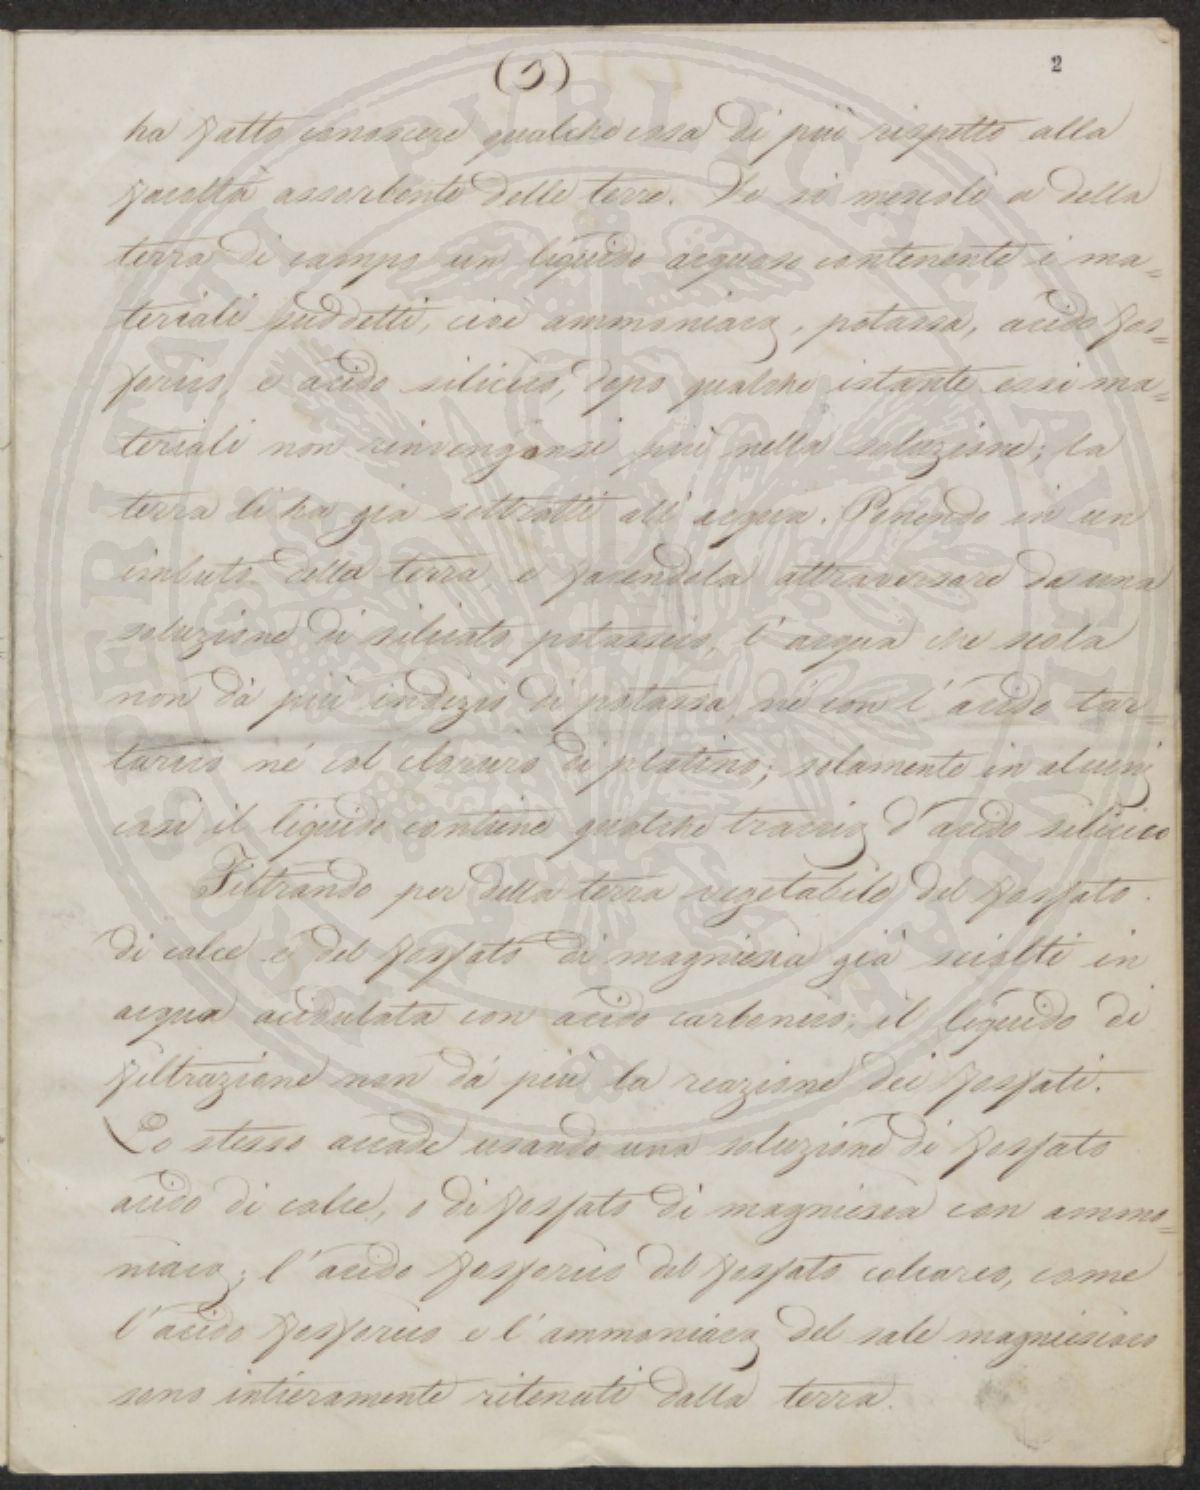 (3)
2
ha fatto conoscere qualche cosa di più rispetto alla
facoltà assorbente delle terre. Se si mescola a della
terra di campo un liquido acquoso contenente i ma=
teriali suddetti, cioè ammoniaca, potassa, acido fos=
forico, e acido silicico, dopo qualche istante essi ma=
teriali non rinvengonsi più nella soluzione; la
terra li ha già sottratti all'acqua. Ponendo in un
imbuto della terra e facendola attraversare da una
soluzione di silicato potassico, l'acqua che scola
non dà più indizio di potassa, nè con l'acido tar=
tarico nè col cloruro di platino; solamente in alcuni
casi il liquido contiene qualche traccia d'acido silicico
Filtrando per della terra vegetabile del fosfato
di calce e del fosfato di magniesia già sciolti in
acqua acidulata con acido carbonico, il liquido di
filtrazione non dà più la reazione dei fosfati.
Lo stesso accade usando una soluzione di fosfato
acido di calce, o di fosfato di magniesia con ammo=
niaca; l'acido fosforico del fosfato calcareo, come
l'acido fosforico e l'ammoniaca del sale magniesiaco
sono intieramente ritenuti dalla terra.